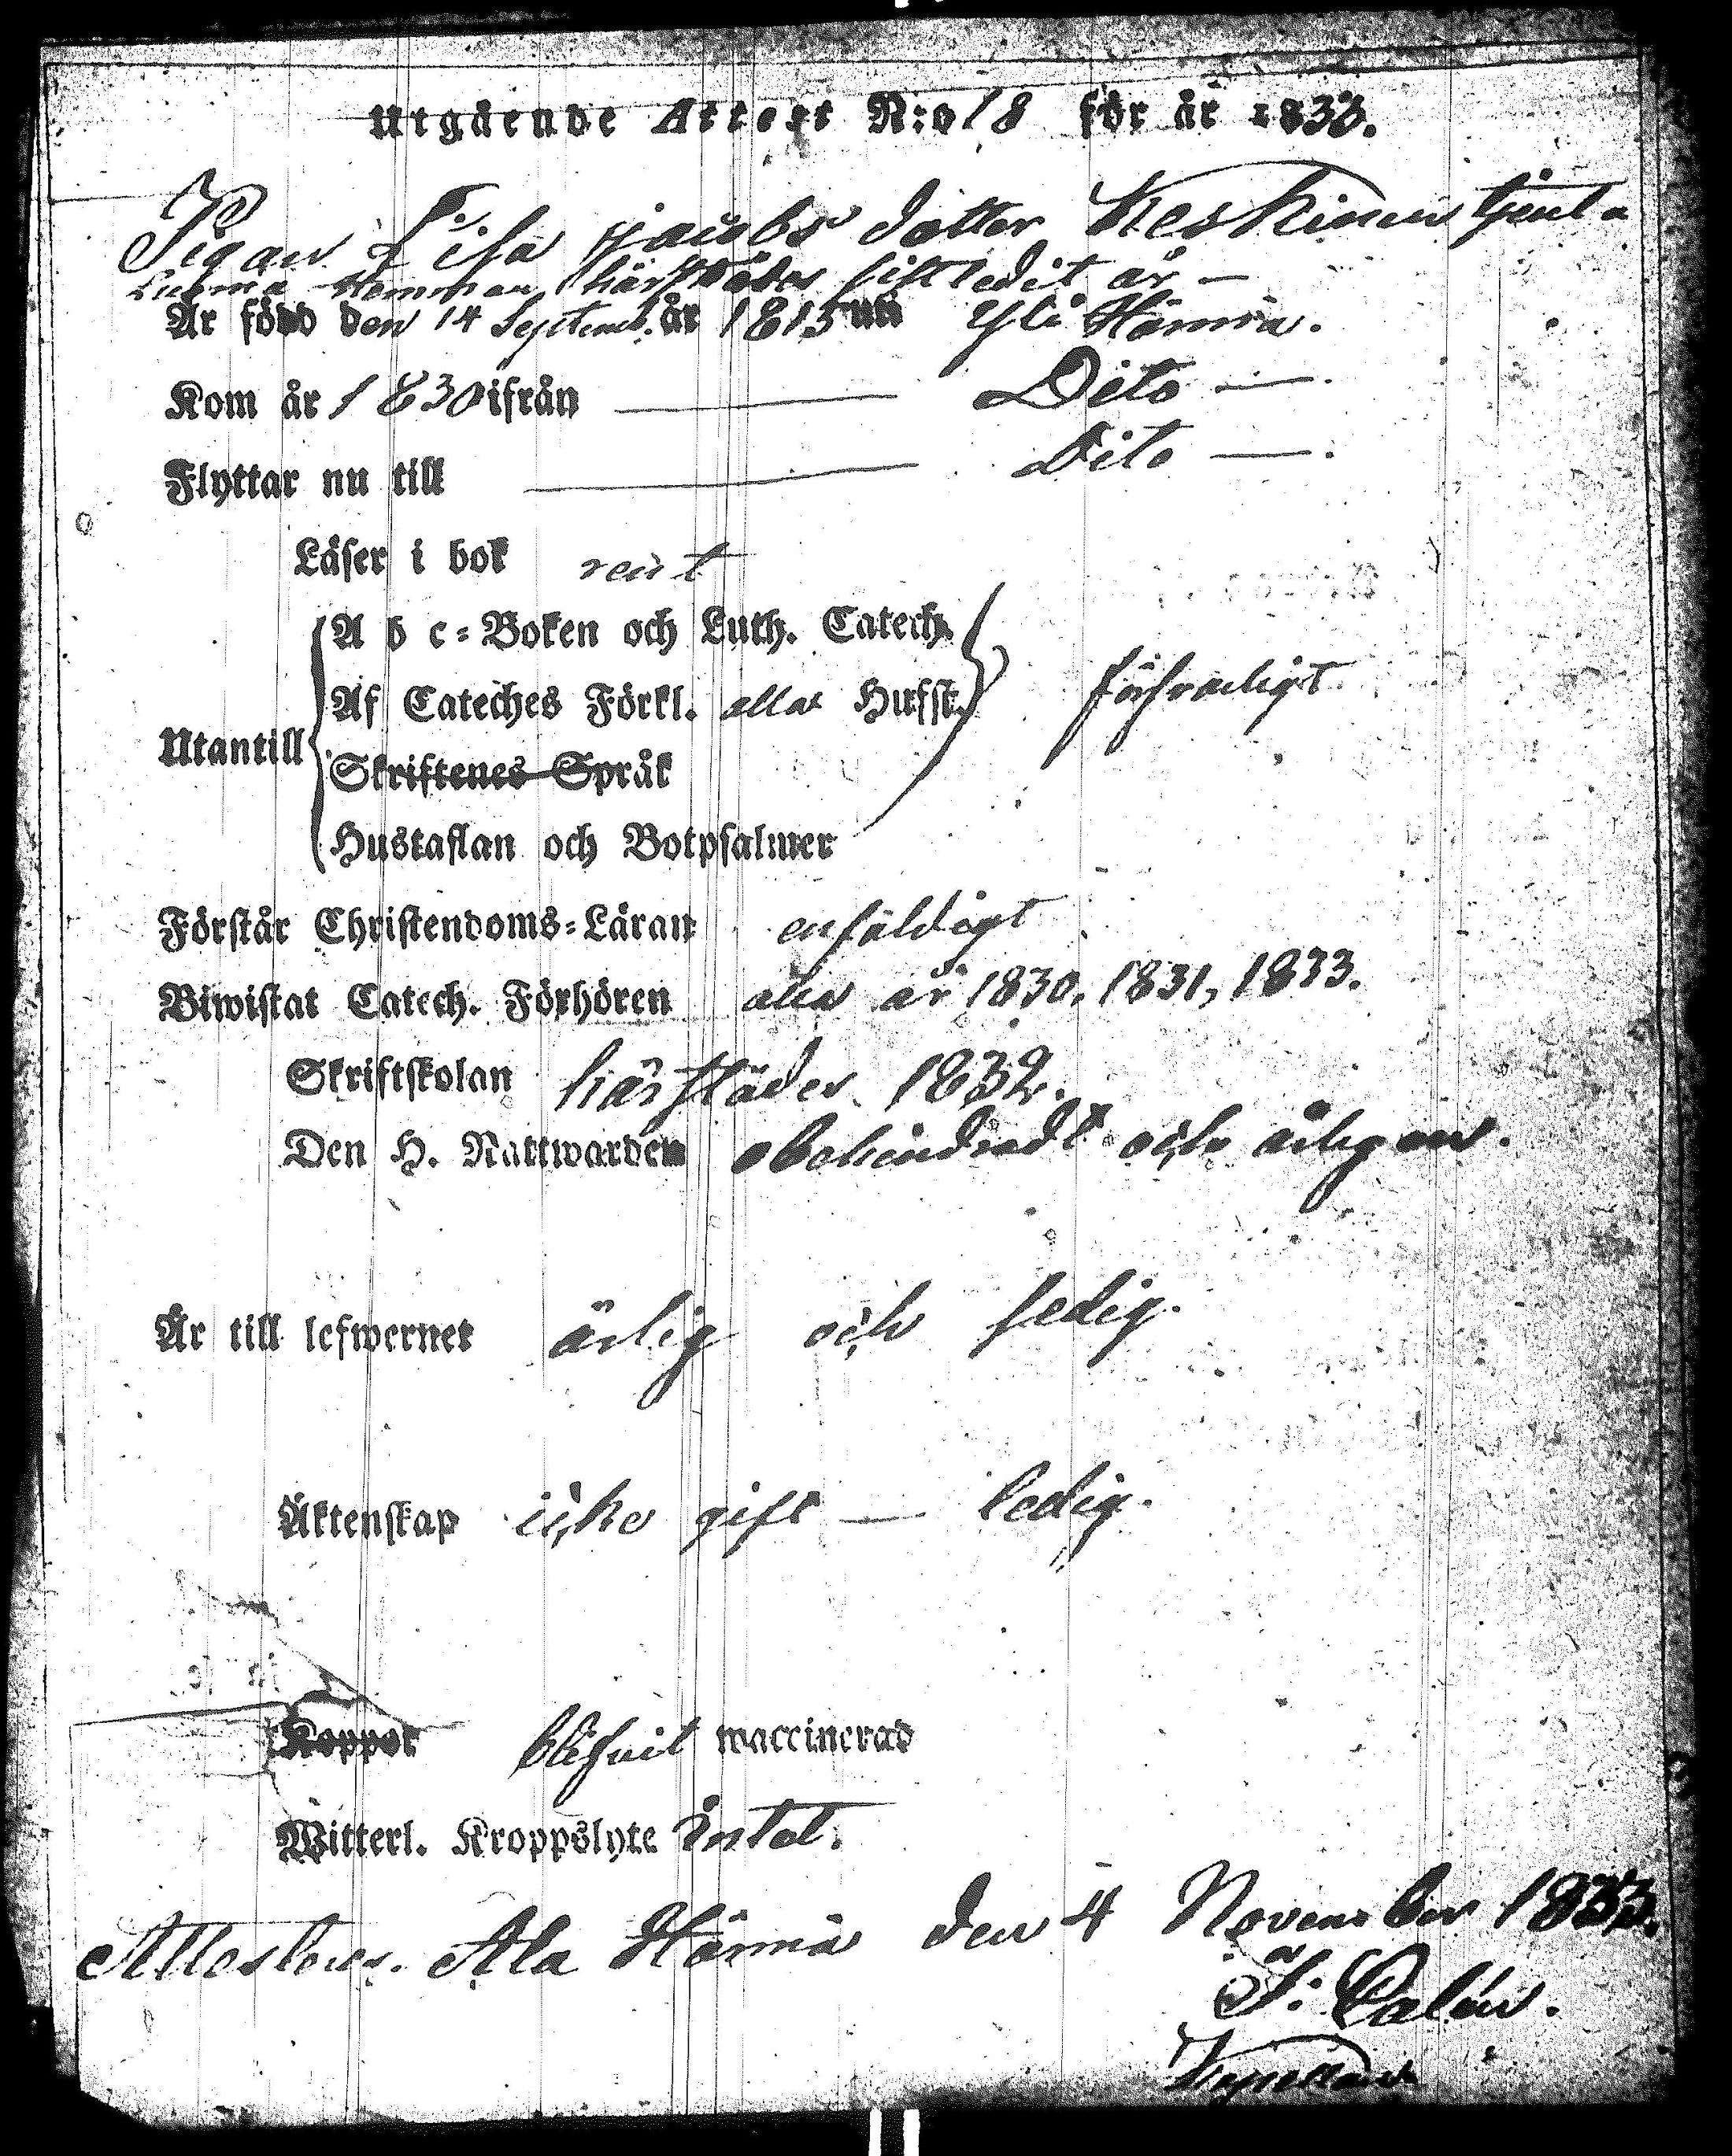 Utgående Attest N:o 18 för år 1833.
Pigan Lisa Jacobs dotter Keskinen tjent a
Luoma Hemman härstädes sistledit år —
Är född den 14 Septemb. år 1815 uti Yli Härmä.
Kom år 1830 ifrån — Dito —.
Flyttar nu till — Dito —.
Läser i bok rent
A b c=Boken och Luth. Catech.
Af Cateches Förkl. allat Hufst. försvarligt
Utantill
Skriftenes Språk
Hustaflan och Botpsalmer
Förstår Christendoms=Läran enfäldigt
Biwistat Catech. Förhören alla år 1830. 1831, 1833.
Skriftskolan härstädes 1832.
Den H. Nattwarden obehindradt och årligen.
Är till lefwernet ärlig och sedig.
Äktenskap icke gift — ledig.
Koppor blifvit waccinerad
Witterl. Kroppslyte Intet.
Attesteras. Ala Härmä den 4 November 1833.
Kapellan